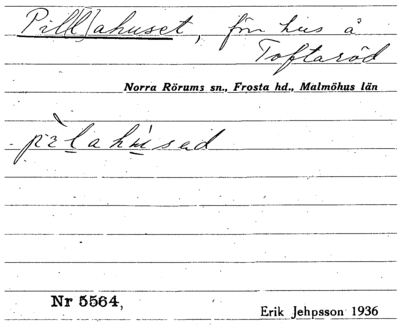 Pill[ahuset, förr hus å
Toftaröd
Norra Rörums sn., Frosta hd., Malmöhus län
Nr 5564,
Erik Jehpsson 1936